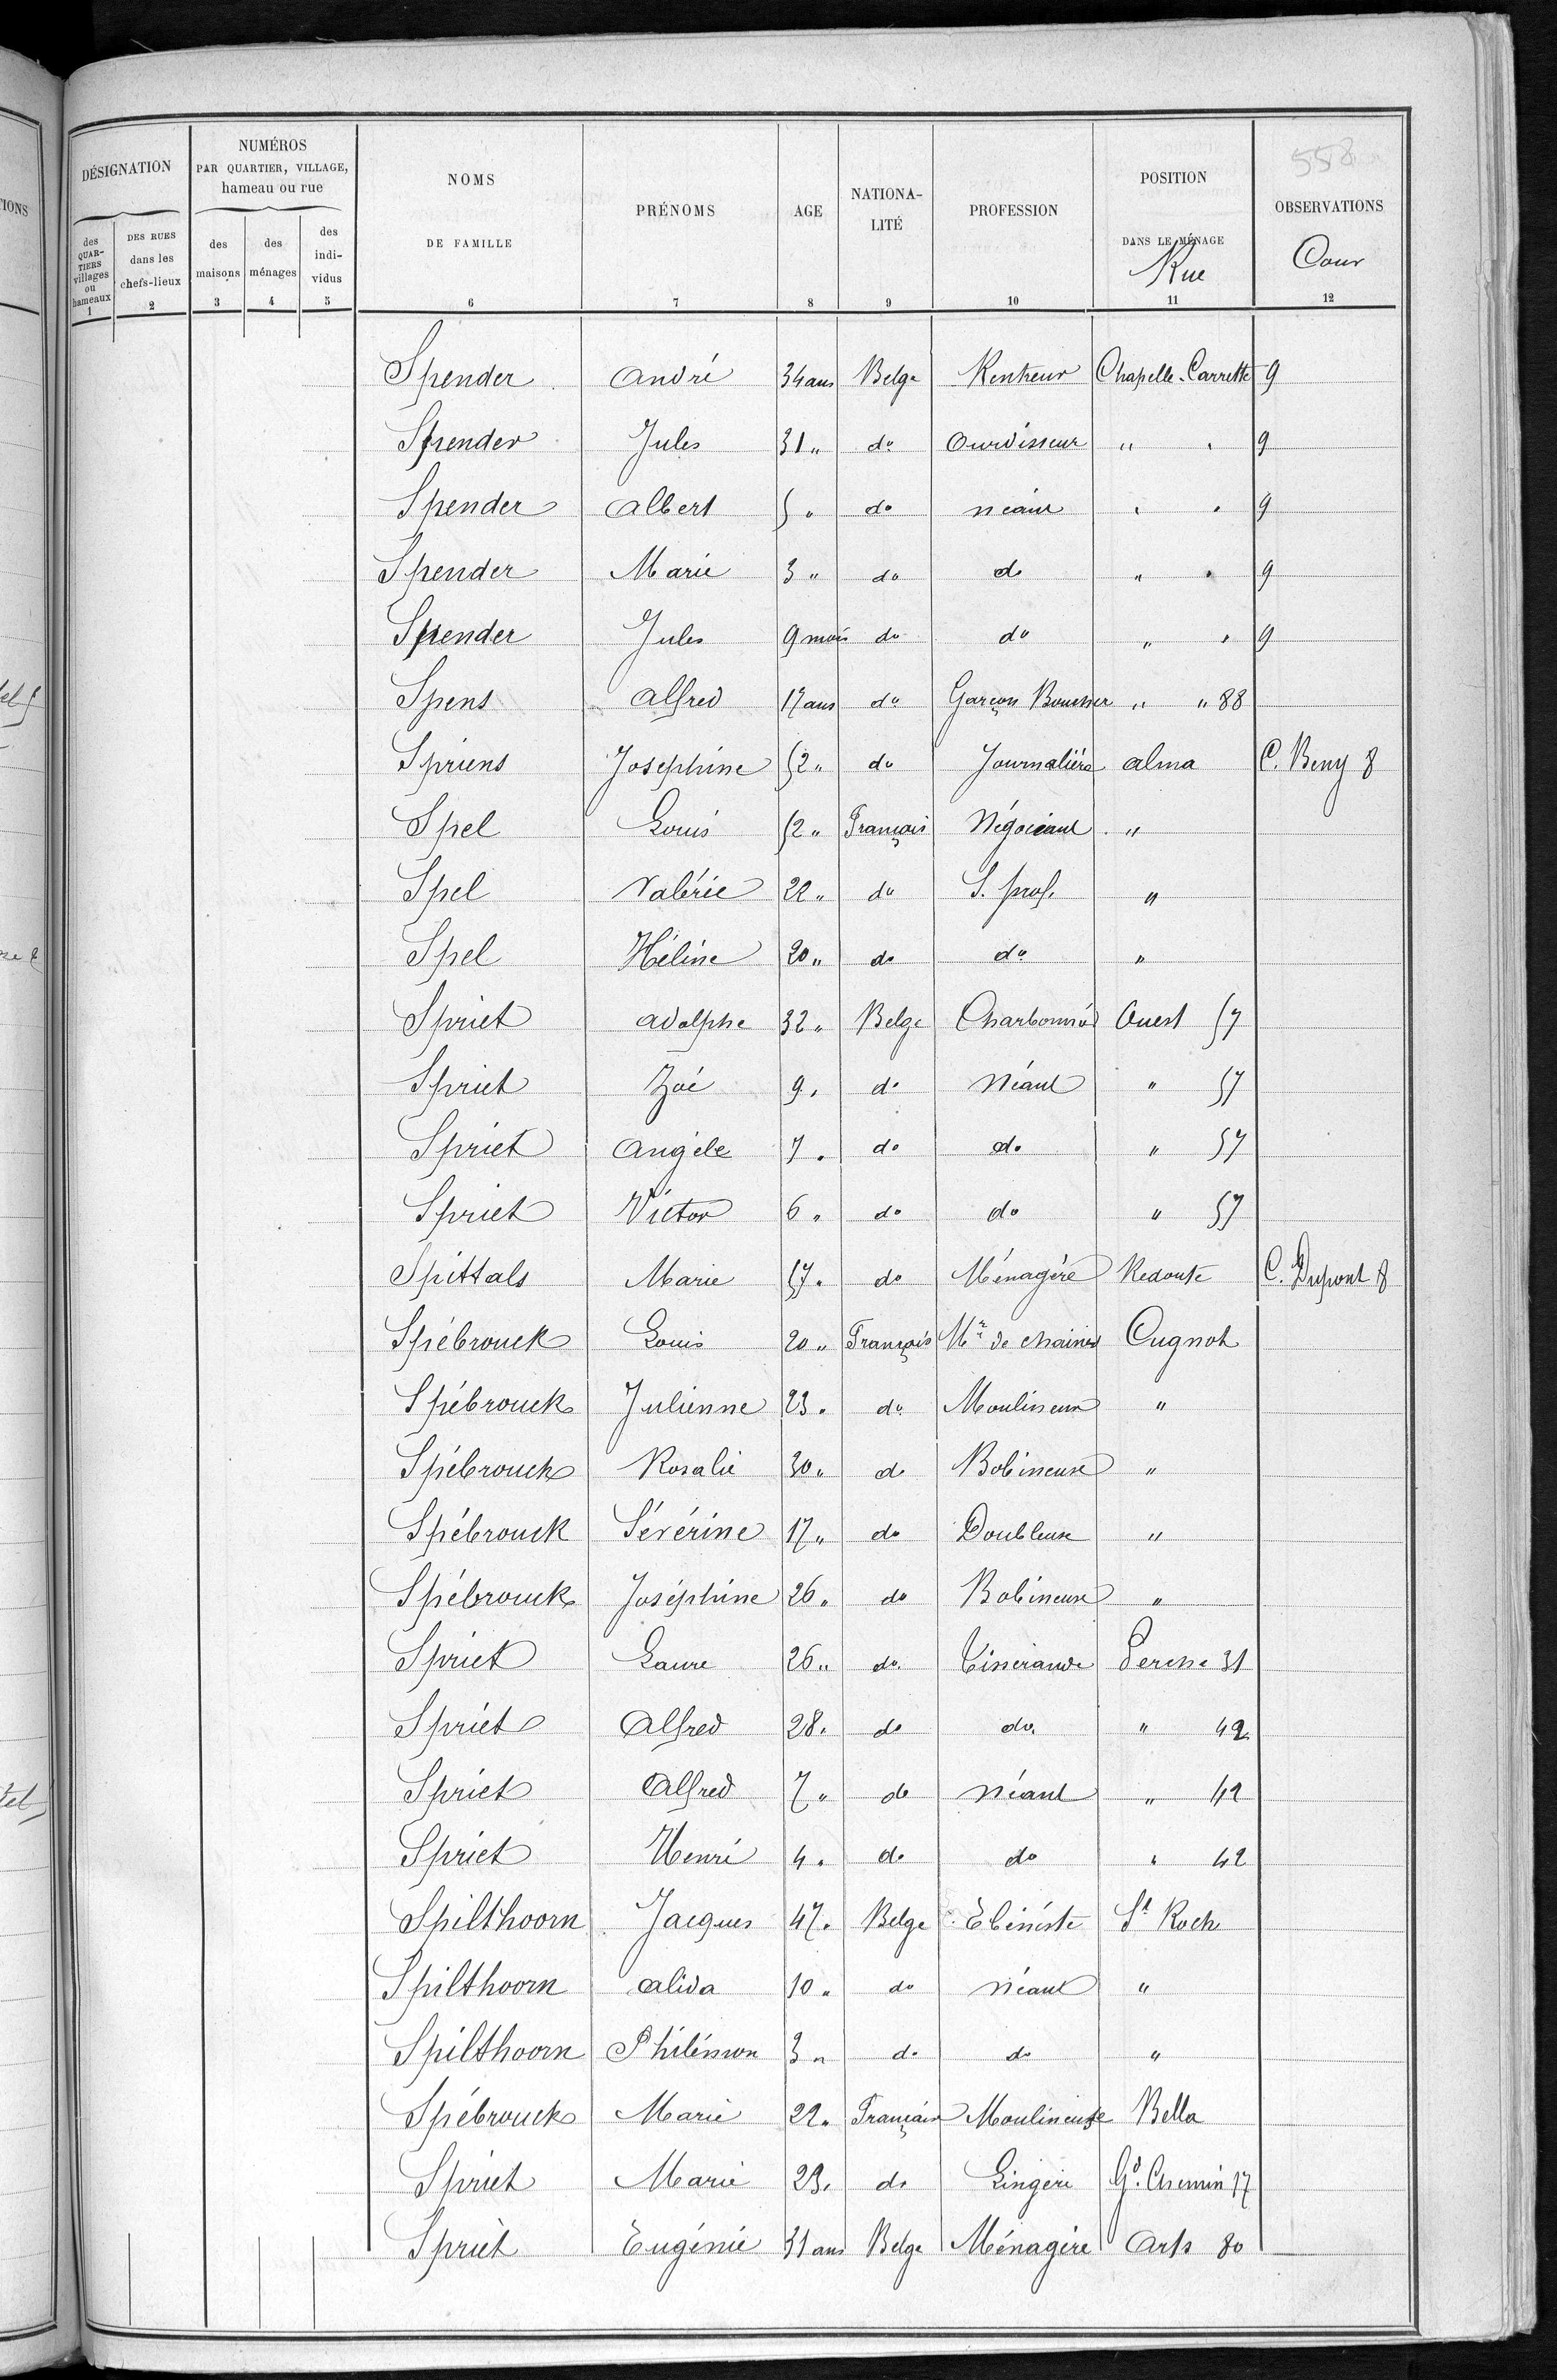 558
DÉSIGNATION
des QUARTIERS villages ou hameaux 1
DES RUES dans les chefs-lieux 2
NUMÉROS PAR QUARTIER, VILLAGE, hameau ou rue
des maisons 3
des ménages 4
des indi-vidus 5
NOMS DE FAMILLE 6
PRÉNOMS 7
AGE 8
NATIONA-LITÉ 9
PROFESSION 10
POSITION DANS LE MÉNAGE Rue 11
OBSERVATIONS Cour 12
Spender André 34 ans Belge Rentreur Chapelle-Carrette 9
Spender Jules 31 " do Ourdisseur " " 9
Spender Albert 5 " do néant " " 9
Spender Marie 3 " do do " " 9
Spender Jules 9 mois do do " " 9
Spens Alfred 17 ans do Garçon Boucher " " 88
Spriens Joséphine 52 " do Journalière Alma C. Beny 8
Spel Louis 52 " Français Négociant "
Spel Valérie 22 " do S. prof. "
Spel Héline 20 " do do "
Spriet Adolphe 32 " Belge Charbonnier Ouest 57
Spriet Zoé 9 " do Néant " 57
Spriet Angèle 7 " do do " 57
Spriet Victor 6 " do do " 57
Spittals Marie 57 " do Ménagère Redoute C. Dupont 8
Spébrouck Louis 20 " Français Mr de chaines Cugnot
Spébrouck Julienne 23 " do Moulineur "
Spébrouck Rosalie 30 " do Bobineuse "
Spébrouck Sévérine 17 " do Doubleuse "
Spébrouck Joséphine 26 " do Bobineuse "
Spriet Laure 26 " do Tisserande Perche 31
Spriet Alfred 28 " do do " 42
Spriet Alfred 7 " do Néant " 42
Spriet Henri 4 " do do " 42
Spilthoorn Jacques 47 " Belge Ebéniste St Roch
Spilthoorn Alida 10 " do Néant "
Spilthoorn Philémon 3 " do do "
Spébrouck Marie 22 " Français Moulineuse Bella
Spriet Marie 23 " do Lingère Gd Chemin 17
Spriet Eugénie 31 ans Belge Ménagère Arts 80